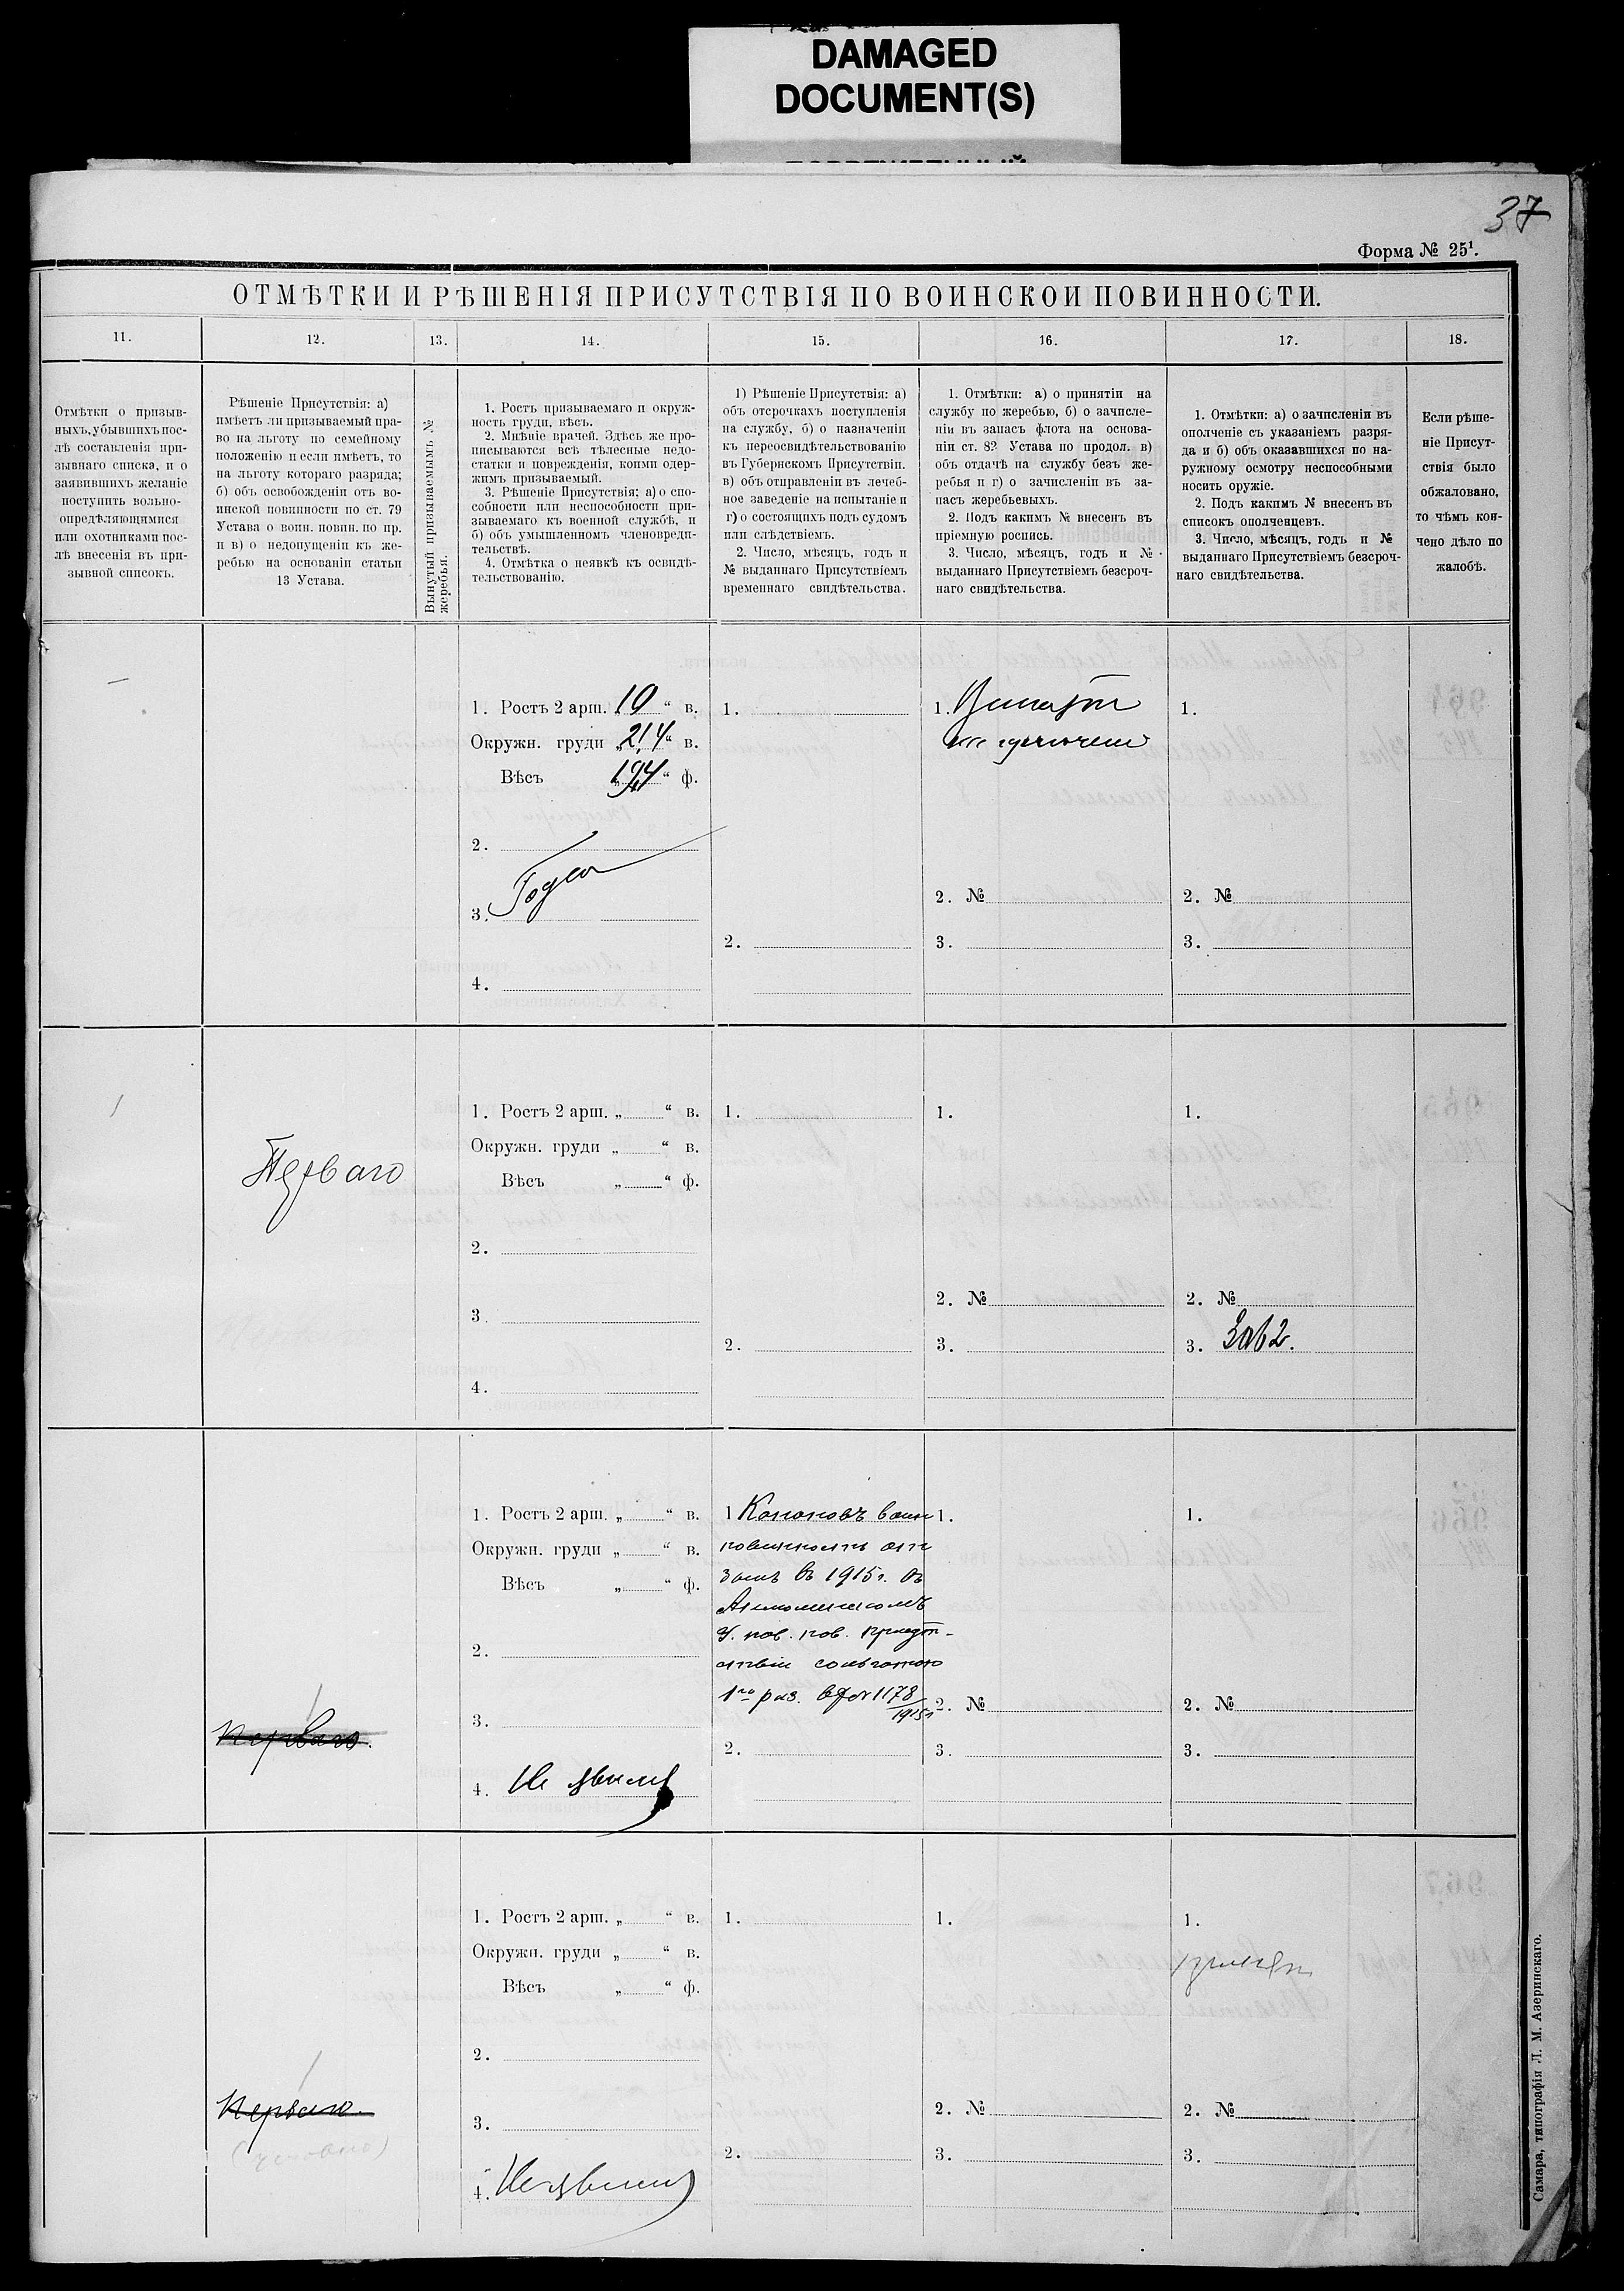 DAMAGED
DOCUMENT(S)
37
Форма № 25¹.
ОТМѢТКИ И РѢШЕНІЯ ПРИСУТСТВІЯ ПО ВОИНСКОЙ ПОВИННОСТИ.
11.
12.
13.
14.
15.
16.
17.
18.
Отмѣтки о призыв-
ныхъ, убывшихъ пос-
лѣ составленія при-
зывнаго списка, и о
заявившихъ желаніе
поступить вольно-
опредѣляющимися
или охотниками пос-
лѣ внесенія въ при-
зывной списокъ.
Рѣшеніе Присутствія: а)
имѣетъ ли призываемый пра-
во на льготу по семейному
положенію и если имѣетъ, то
на льготу котораго разряда;
б) объ освобожденіи отъ во-
инской повинности по ст. 79
Устава о воин. повин. по пр.
и в) о недопущеніи къ же-
ребью на основаніи статьи
13 Устава.
Вынутый призываемымъ №
жеребья.
1. Ростъ призываемаго и окруж-
ность груди, вѣсъ.
2. Мнѣніе врачей. Здѣсь же про-
писываются всѣ тѣлесные недо-
статки и поврежденія, коими одер-
жимъ призываемый.
3. Рѣшеніе Присутствія; а) о спо-
собности или неспособности при-
зываемаго къ военной службѣ, и
б) объ умышленномъ членовреди-
тельствѣ.
4. Отмѣтка о неявкѣ къ освидѣ-
тельствованію.
1) Рѣшеніе Присутствія: а)
объ отсрочкахъ поступленія
на службу, б) о назначеніи
къ переосвидѣтельствованію
въ Губернскомъ Присутствіи.
в) объ отправленіи въ лечеб-
ное заведеніе на испытаніе и
г) о состоящихъ подъ судомъ
или слѣдствіемъ.
2. Число, мѣсяцъ, годъ и
№ выданнаго Присутствіемъ
временнаго свидѣтельства.
1. Отмѣтки: а) о принятіи на
службу по жеребью, б) о зачисле-
ніи въ запасъ флота на основа-
ніи ст. 82 Устава по продол. в)
объ отдачѣ на службу безъ же-
ребья и г) о зачисленіи въ за-
пасъ жеребьевыхъ.
2. Подъ какимъ № внесенъ въ
пріемную роспись.
3. Число, мѣсяцъ, годъ и №
выданнаго Присутствіемъ безсроч-
наго свидѣтельства.
1. Отмѣтки: а) о зачисленіи въ
ополченіе съ указаніемъ разря-
да и б) объ оказавшихся по на-
ружному осмотру неспособными
носить оружіе.
2. Подъ какимъ № внесенъ въ
списокъ ополченцевъ.
3. Число, мѣсяцъ, годъ и №
выданнаго Присутствіемъ безсроч-
наго свидѣтельства.
Если рѣше-
ніе Присут-
ствія было
обжаловано,
то чѣмъ кон-
чено дѣло по
жалобѣ.
1. Ростъ 2 арш. „10“ в.
Окружн. груди „21,4“ в.
Вѣсъ „194“ ф.
2.
3. Годен
4.
1.
2.
1.
2. №
3.
1.
2. №
3.
Перваго
1. Ростъ 2 арш. „ “ в.
Окружн. груди „ “ в.
Вѣсъ „ “ ф.
2.
3.
4.
1.
2.
1.
2. №
3.
1.
2. №
3.
Перваго.
1. Ростъ 2 арш. „ “ в.
Окружн. груди „ “ в.
Вѣсъ „ “ ф.
2.
3.
4. Не явился
1 Кононовъ воин
повинность отб
въ 1915г. въ
У. пов.
1го раз. 1178
1915г
2.
1.
2. №
3.
1.
2. №
3.
Перваго.
1. Ростъ 2 арш. „ “ в.
Окружн. груди „ “ в.
Вѣсъ „ “ ф.
2.
3.
4. Не явился
1.
2.
1.
2. №
3.
1.
принят
2. №
3.
Самара, типографія Л. М. Азеринскаго.